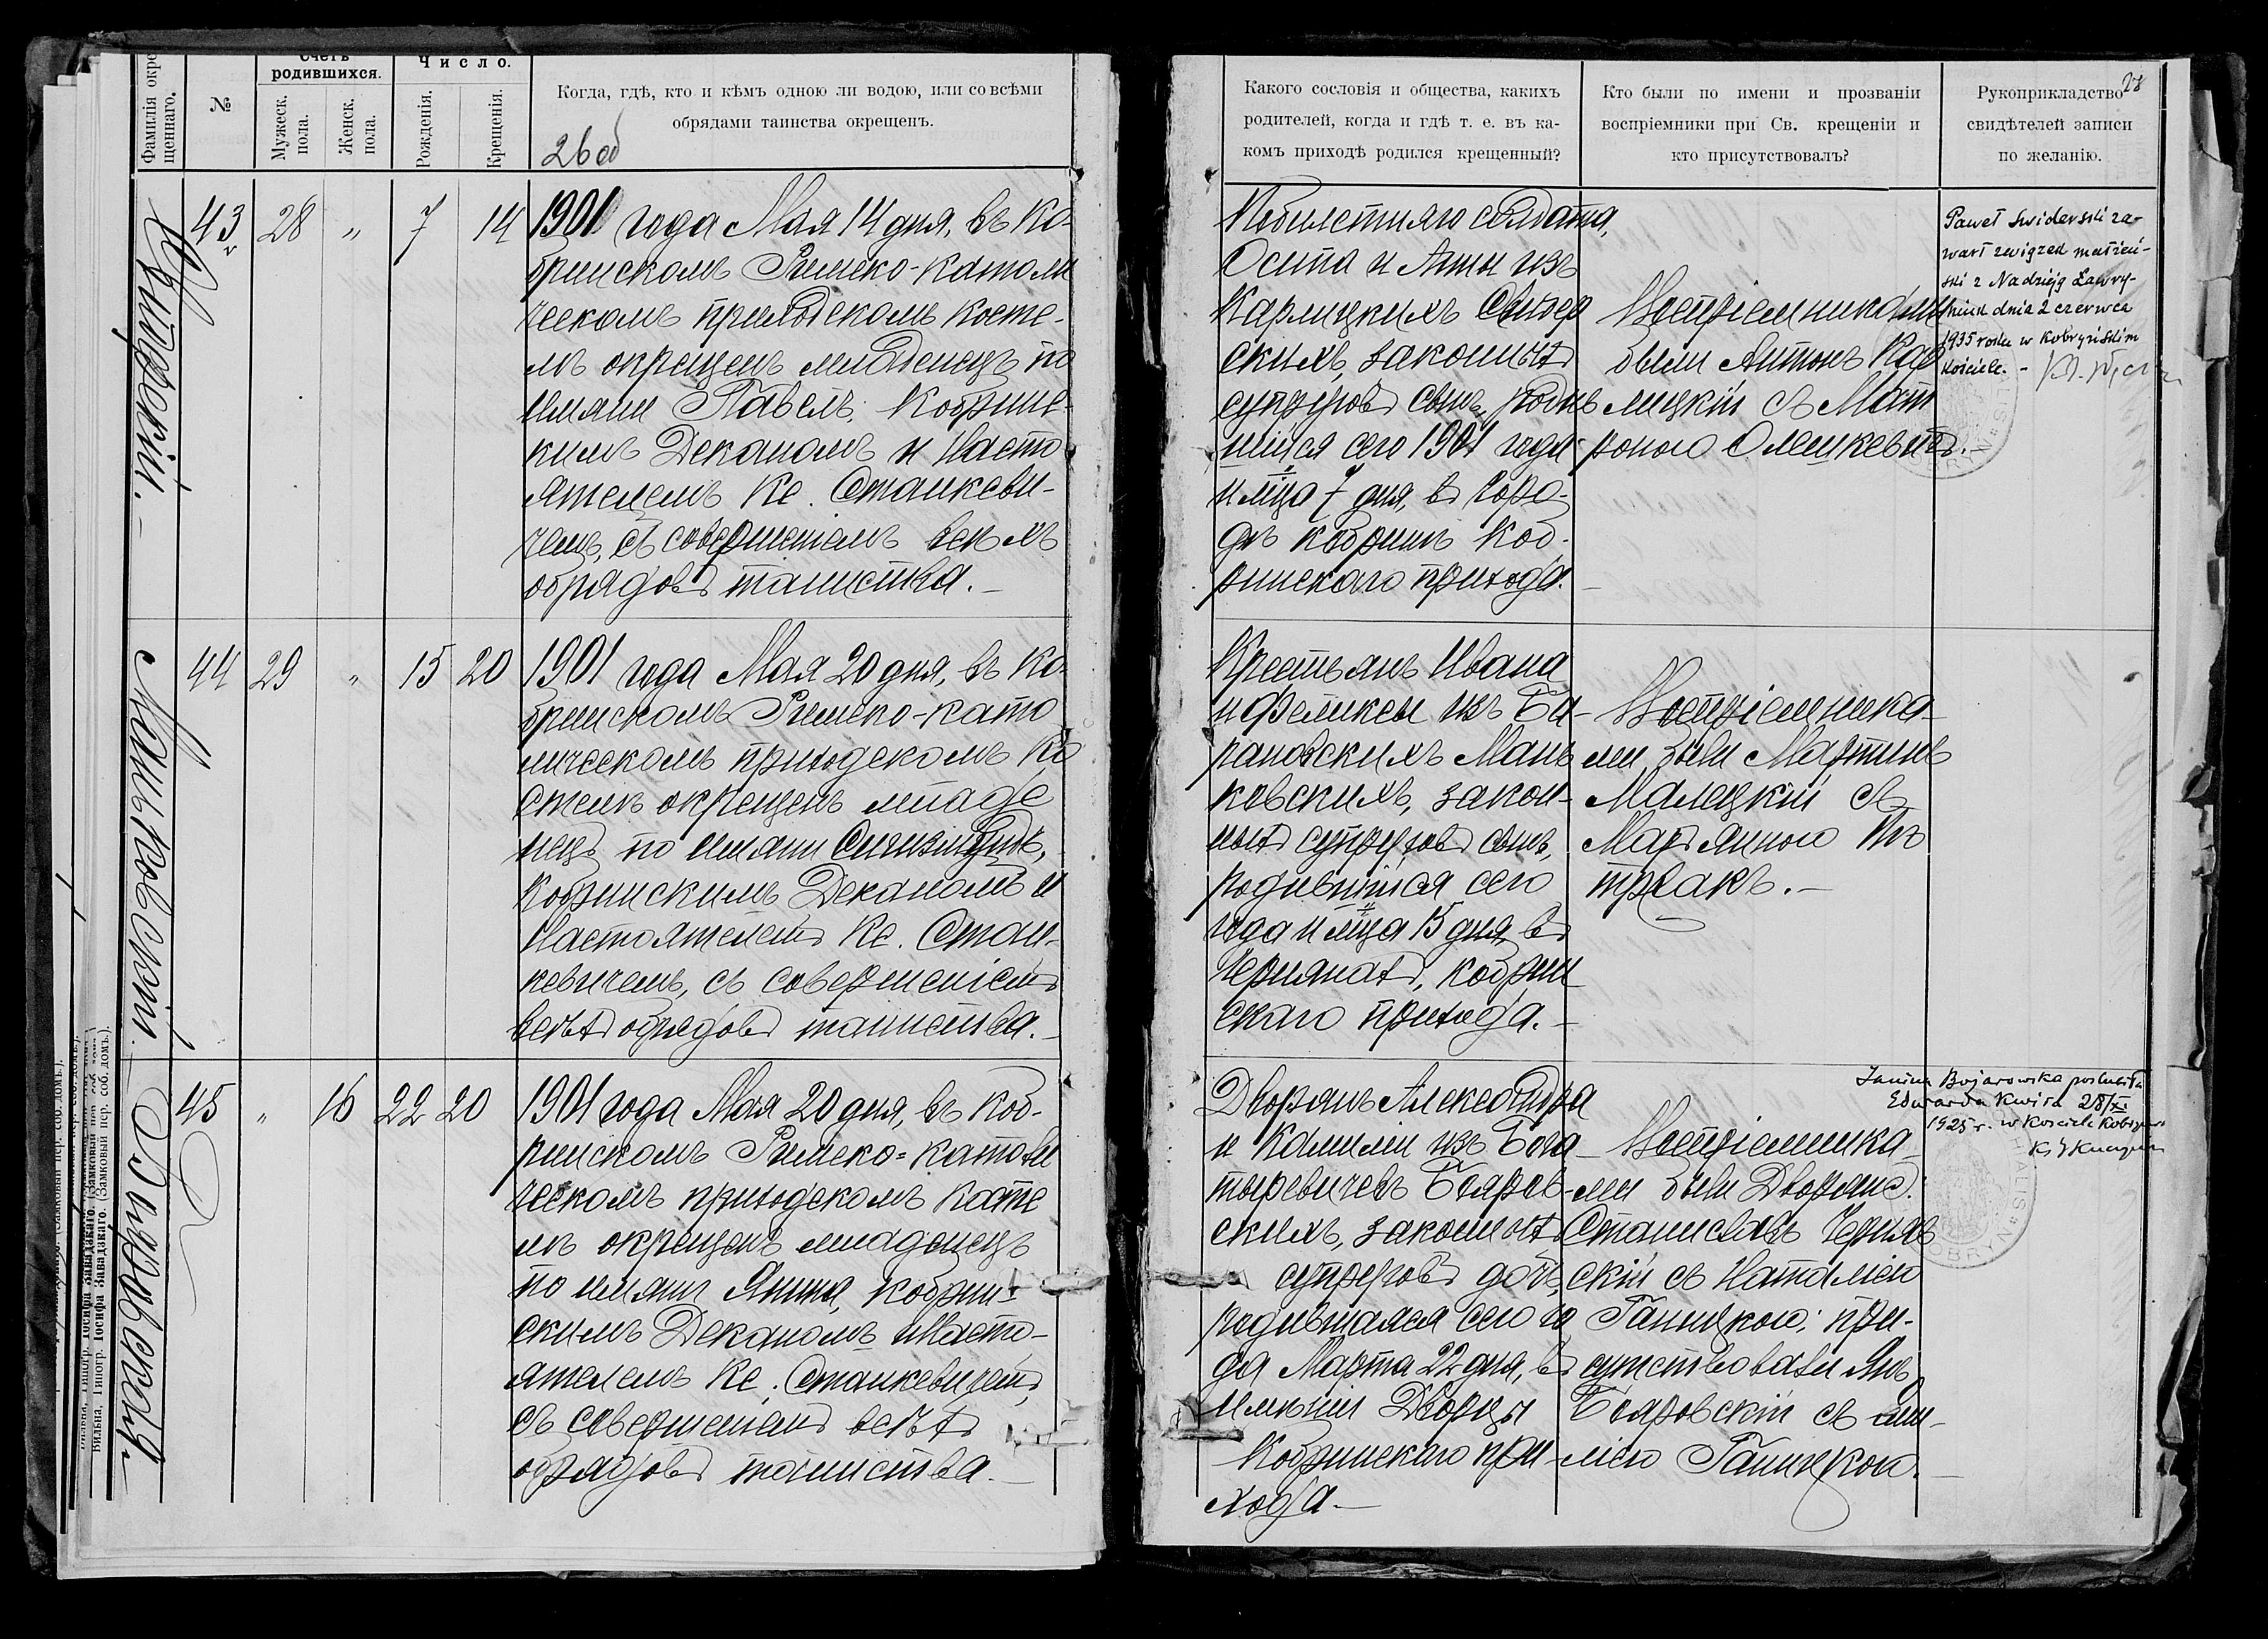 Фамилія окре-
щеннаго.
№
Счетъ
родившихся.
Мужеск.
пола.
Женск.
пола.
Число.
Рожденія.
Крещенія.
Когда, гдѣ, кто и кѣмъ одною ли водою, или со всѣми
обрядами таинства окрещенъ.
26 об
43
28
„
7
14
1901 года Мая 14 дня, въ Ко-
бринскомъ Римско-Католи
ческомъ приходскомъ косте-
лѣ окрещенъ младенецъ по
имени Павелъ, Кобринс-
кимъ Деканомъ и Насто
ятелемъ Кс. Станкеви-
чемъ, съ совершеніемъ всѣхъ
обрядовъ таинства.
Маньковскій.
44
29
„
15
20
1901 года Мая 20 дня, въ Ко-
бринскомъ Римско-като
лическомъ приходскомъ ко
стелѣ окрещенъ младе
нецъ по имени Сигизмундъ,
Кобринскимъ Деканомъ и
Настоятелемъ Кс. Стан-
кевичемъ, съ совершеніемъ
всѣхъ обрядовъ таинства.
45
„
16
22
20
1901 года Мая 20 дня, въ Коб-
ринскомъ Римско-католи
ческомъ приходскомъ косте
лѣ окрещенъ младенецъ
по имени Янина, кобрин-
скимъ Деканомъ и Насто-
ятелемъ Кс. Станкевичемъ,
съ совершеніемъ всѣхъ
обрядовъ таинства.
Вильна, Типогр. Іосифа Завадзкаго. (Замковый пер. соб. домъ.).
28
Какого сословія и общества, какихъ
родителей, когда и гдѣ т. е. въ ка-
комъ приходѣ родился крещенный?
Кто были по имени и прозваніи
воспріемники при Св. крещеніи и
кто присутствовалъ?
Рукоприкладство
свидѣтелей записи
по желанію.
солдата,
Осипа и Анны изъ
Карлицкихъ Свидер
скихъ, законныхъ
супруговъ сынъ, родив
шійся сего 1901 года
и мѣца 7 дня, въ горо-
дѣ Кобринѣ Коб-
ринскаго прихода.
Воспріемниками
были Антонъ Кар
лицкій съ Мат
роною Олешкевичъ.
Paweł Swiderski za-
warł związek małżeń-
ski z Nadzieją Ławry-
niuk dnia 2 czerwca
1935 roku w Kobryńskim
Kościele.
Крестьянъ Ивана
и Феликсы изъ Ба-
рановскихъ Мань
ковскихъ, закон-
ныхъ супруговъ сынъ,
родившійся сего
года и мѣца 15 дня, въ
Черняхахъ, кобрин
скаго прихода.
Воспріемника-
ми были Мартинъ
Малецкій съ
Марьянною Пѣ
тракъ.
Дворянъ Александра
и Камиліи изъ Бога
тыревичевъ Бояров-
скихъ, законныхъ
супруговъ дочь,
родившаяся сего го
да Марта 22 дня, въ
имѣніи Дворцы
Кобринскаго при-
хода.
Воспріемника-
ми были Дворяне.
Станиславъ Черняв
скій съ Наталіею
Ганицкою; при-
сутствовали Янъ
Бояровскій съ Эми-
ліею Ганицкою.
Janina Bojarowska poślubiła
Edwarda Kwita 28/XI
1925 r. w Kościele Kobryńs